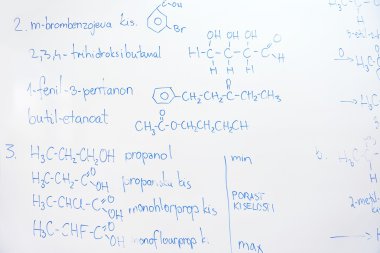 2. m-brombenzojeva kis.
Br
2,3,4-trihidroksibutanal
OH OH OH O
H-C-C-C-C
H H H H
1-fenil-3-pentanon
O
CH₂-CH₂-C-CH₂-CH₃
butil-etanoat
O
CH₃C-O-CH₂CH₂CH₂CH
3. H₃C-CH₂-CH₂OH propanol
H₃C-CH₂-C O OH kis
H₃C-CHCl-C O OH monohlorprop kis
H₃C-CHF-C O OH monofluorprop k.
min
PORAST
KISELOSTI
max
b.
H₃C
2-metil